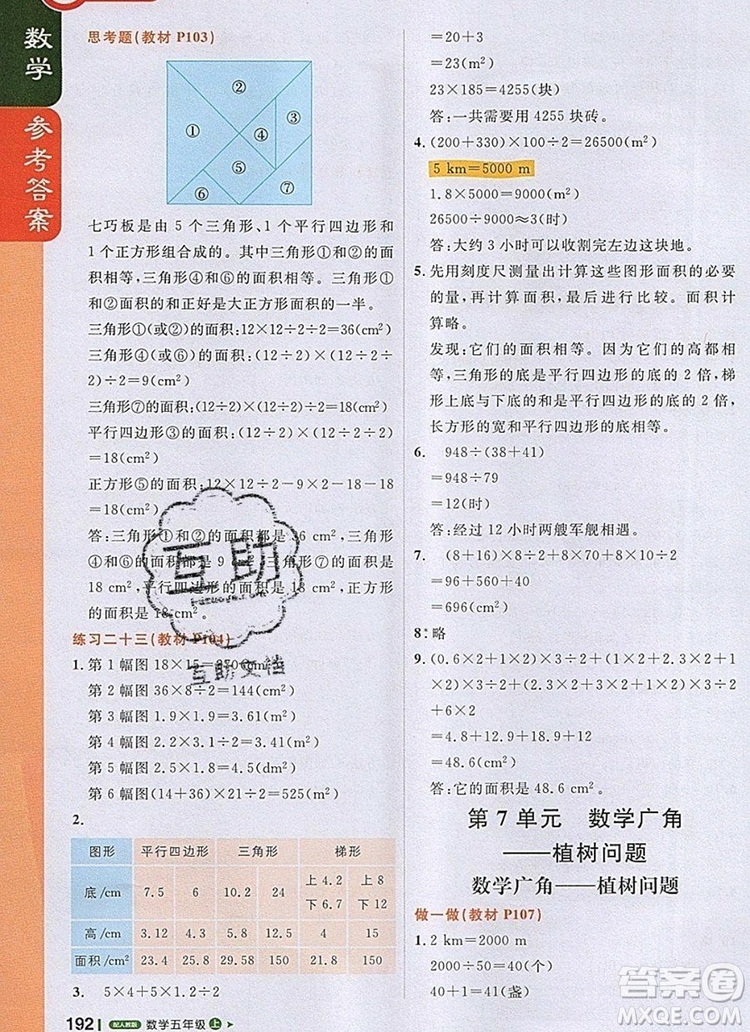 数学
参考答案
思考题(教材 P103)
① ② ③ ④ ⑤ ⑥ ⑦
七巧板是由 5 个三角形、1 个平行四边形和
1 个正方形组合成的。其中三角形①和②的面
积相等,三角形④和⑥的面积相等,三角形①
和②的面积的和正好是大正方形面积的一半。
三角形①(或②)的面积:12×12÷2÷2=36(cm²)
三角形④(或⑥)的面积:(12÷2)×(12÷2)÷2÷2
=9(cm²)
三角形⑦的面积:(12÷2)×(12÷2)÷2=18(cm²)
平行四边形③的面积:(12÷2)×(12÷2÷2)
=18(cm²)
正方形⑤的面积:12×12÷2-9×2-18-18
=18(cm²)
答:三角形①和②的面积都是 36 cm²,三角形
④和⑥的面积都是 9 cm²,三角形⑦的面积是
18 cm²,平行四边形③的面积是 18 cm²,正方形
⑤的面积是 18 cm²。
练习二十三(教材 P104)
1. 第 1 幅图 18×15=270(cm²)
第 2 幅图 36×8÷2=144(cm²)
第 3 幅图 1.9×1.9=3.61(m²)
第 4 幅图
第 5 幅图 2×4.5÷2=4.5(dm²)
第 6 幅图(14+36)×21÷2=525(m²)
2.
图形 平行四边形 三角形 梯形
底/cm 7.5 6 10.2 24 上 4.2 下 6.7 上 8.7 下 11.3
高/cm 3.12 4.3 5.8 12.5 4 15
面积/cm² 23.4 25.8 29.58 150 21.8 150
3. 5×4+5×2÷2
=20+3
=23(m²)
23×185=4255(块)
答:一共需要用 4255 块砖。
4. (200+330)×100÷2=26500(m²)
5 km=5000 m
1.8×5000=9000(m²)
26500÷9000≈3(时)
答:大约 3 小时可以收割完左边这块地。
5. 先用刻度尺测量出计算这些图形面积的必要
的量,再计算面积,进行比较。面积计
算略。
发现:它们的面积相等。因为它们的高都相
等,三角形的底是平行四边形的底的 2 倍,梯
形上底与下底的和是平行四边形的底的 2 倍,
长方形的宽和平行四边形的底相等。
6. 948÷(38+41)
=948÷79
=12(时)
答:经过 12 小时两艘军舰相遇。
7. (8+16)×8÷2+8×70+16×8÷2
=96+560+40
=696(cm²)
8. 略
9. (0.6×2+1×2)×3÷2+(1.3×2+1×2
+1×2)×3÷2+(1.2×2+1×2)×3÷2+
6×2
=4.8+12.9+18.9+12
=48.6(m²)
答:它的面积是 48.6 m²。
第 7 单元 数学广角
——植树问题
数学广角——植树问题
做一做(教材 P107)
1. 2 km=2000 m
2000÷50=40(个)
(40+1)×2=82(盏)
192 配人教版 数学五年级 上
互助
互助文档
答案圈
MXQE.COM